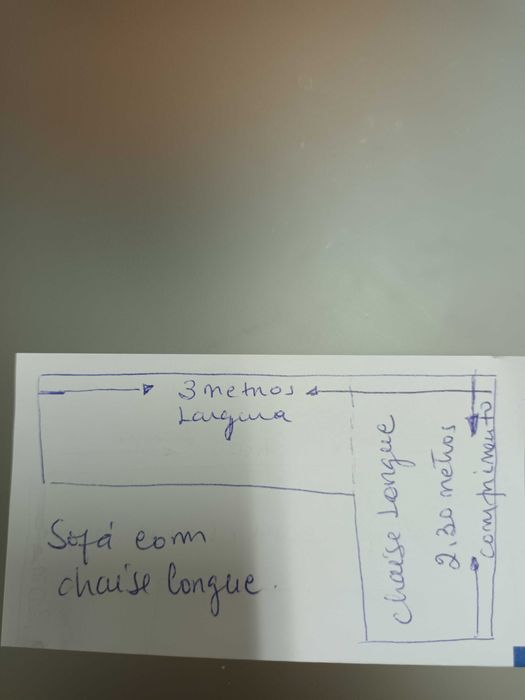 3 metros
Largura
chaise Longue
2,30 metros
comprimento
Sofá com
chaise longue.